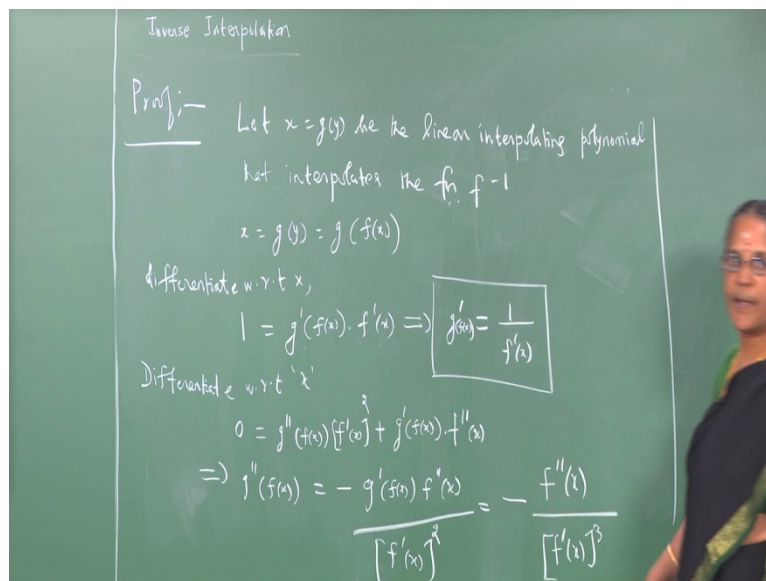 Inverse Interpolation
Proof:-
Let x = g(y) be the linear interpolating polynomial
that interpolates the fn. f^-1
x = g(y) = g(f(x))
differentiate w.r.t x,
1 = g'(f(x)). f'(x) => g'(f(x)) = 1/f'(x)
Differentiate w.r.t 'x'
0 = g''(f(x))[f'(x)]^2 + g'(f(x)). f''(x)
=> g''(f(x)) = - g'(f(x)) f''(x)/[f'(x)]^2 = - f''(x)/[f'(x)]^3